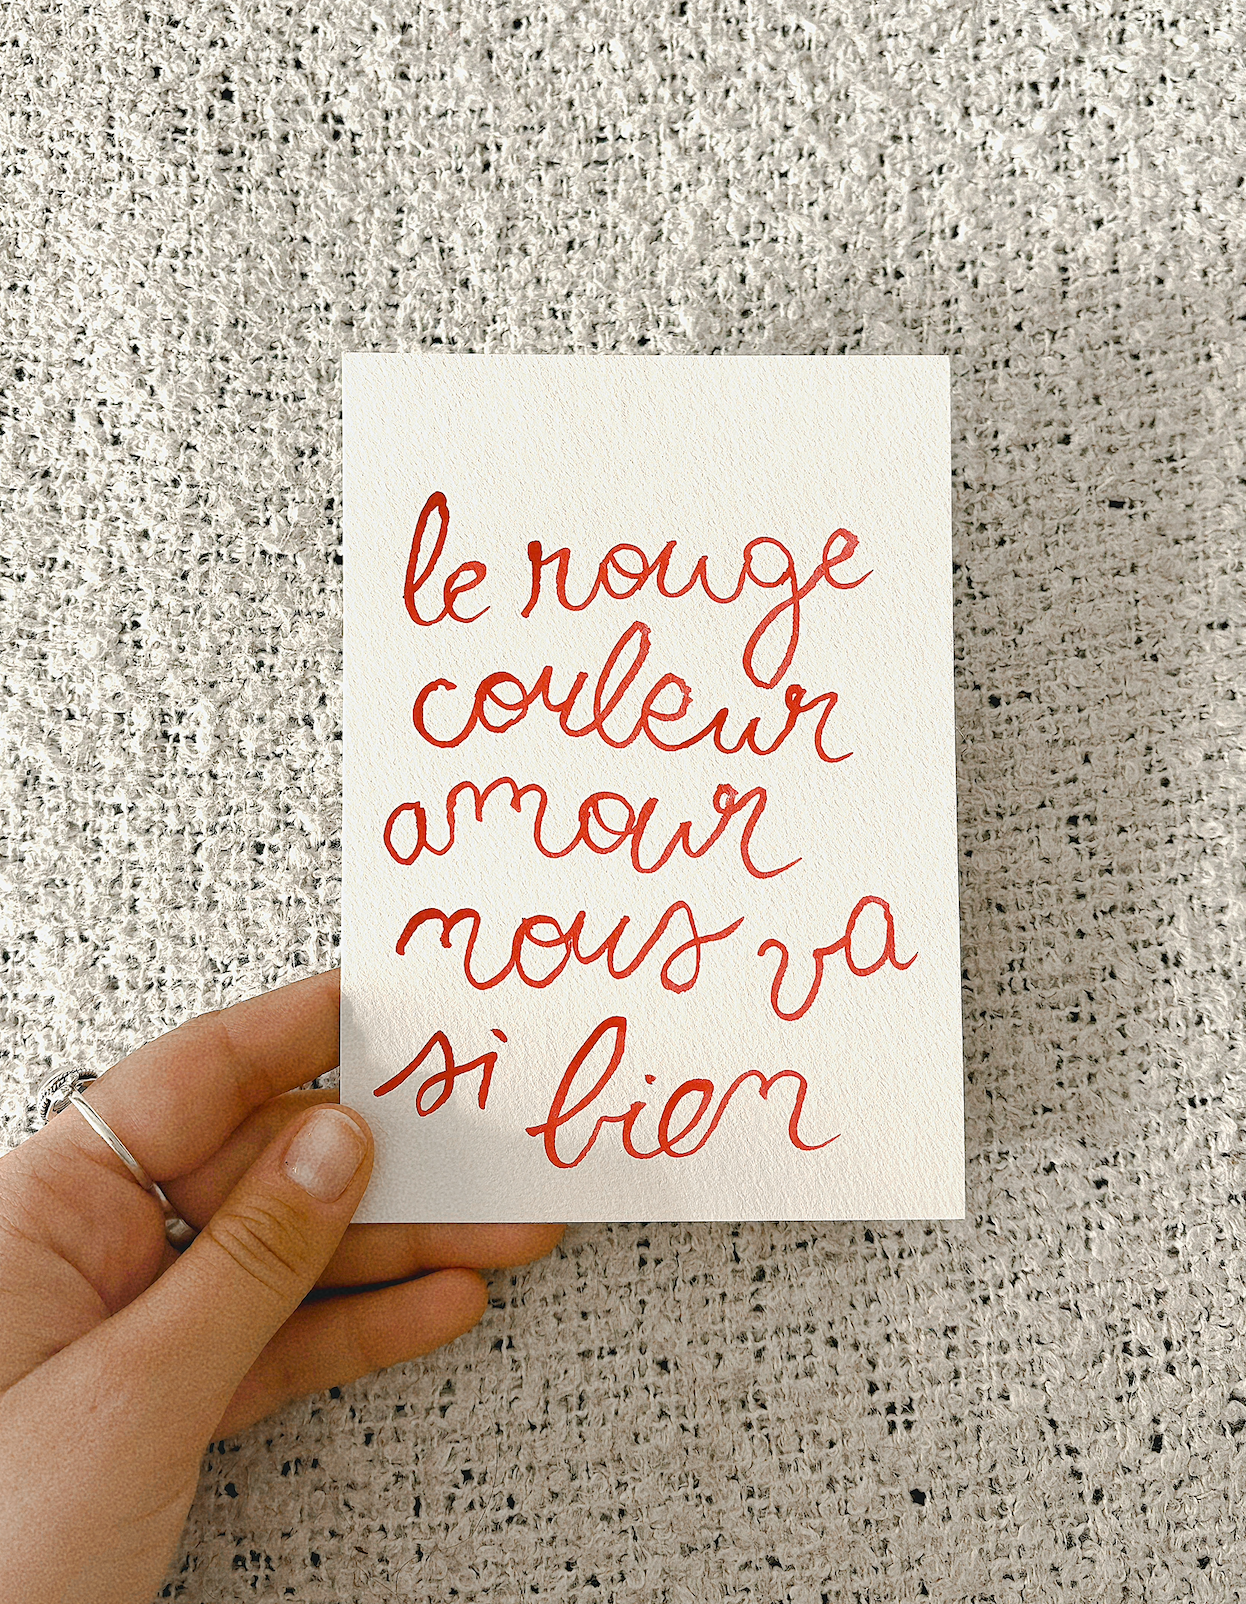 le rouge
couleur
amour
nous va
si bien